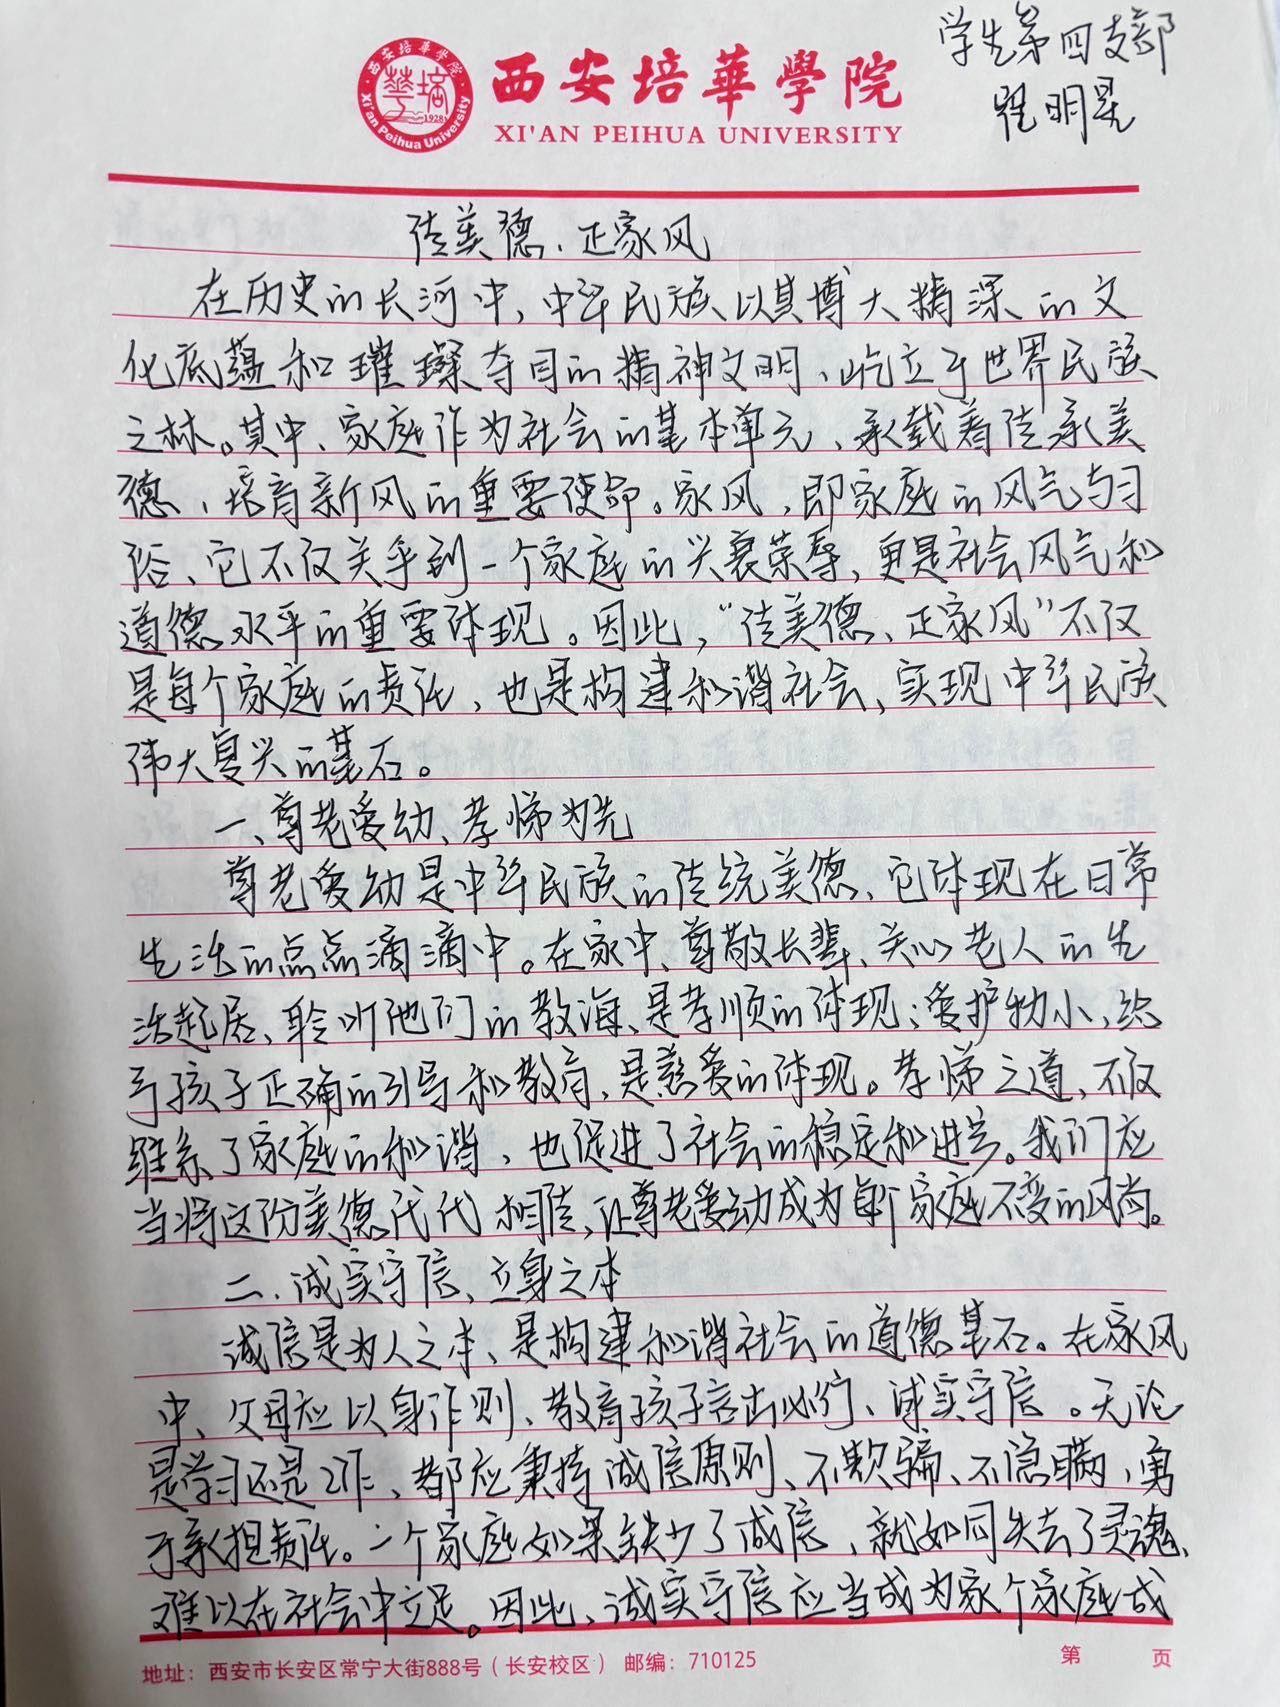 学生第四支部
程明星
西安培華學院
XI'AN PEIHUA UNIVERSITY
西安培华学院
Xi'an Peihua University
1928
传美德、正家风
在历史的长河中,中华民族以其博大精深的文
化底蕴和璀璨夺目的精神文明、屹立于世界民族
之林。其中、家庭作为社会的基本单元、承载着传承美
德、培育新风的重要使命。家风,即家庭的风气与习
俗、它不仅关乎到一个家庭的兴衰荣辱,更是社会风气和
道德水平的重要体现。因此,“传美德、正家风”不仅
是每个家庭的责任,也是构建和谐社会、实现中华民族
伟大复兴的基石。
一、尊老爱幼、孝悌为先
尊老爱幼是中华民族的传统美德、它体现在日常
生活的点点滴滴中。在家中、尊敬长辈、关心老人的生
活起居、聆听他们的教诲、是孝顺的体现;爱护幼小、给
予孩子正确的引导和教育,是慈爱的体现。孝悌之道、不仅
维系了家庭的和谐、也促进了社会的稳定和进步。我们应
当将这份美德代代相传,让尊老爱幼成为每个家庭不变的风尚。
二、诚实守信、立身之本
诚信是为人之本、是构建和谐社会的道德基石。在家风
中、父母应以身作则、教育孩子言出必行、诚实守信。无论
是学习还是工作、都应秉持诚信原则、不欺骗、不隐瞒,勇
于承担责任。一个家庭如果缺少了诚信,就如同失去了灵魂、
难以在社会中立足。因此、诚实守信应当成为家个家庭成
地址:西安市长安区常宁大街888号(长安校区) 邮编:710125
第 页